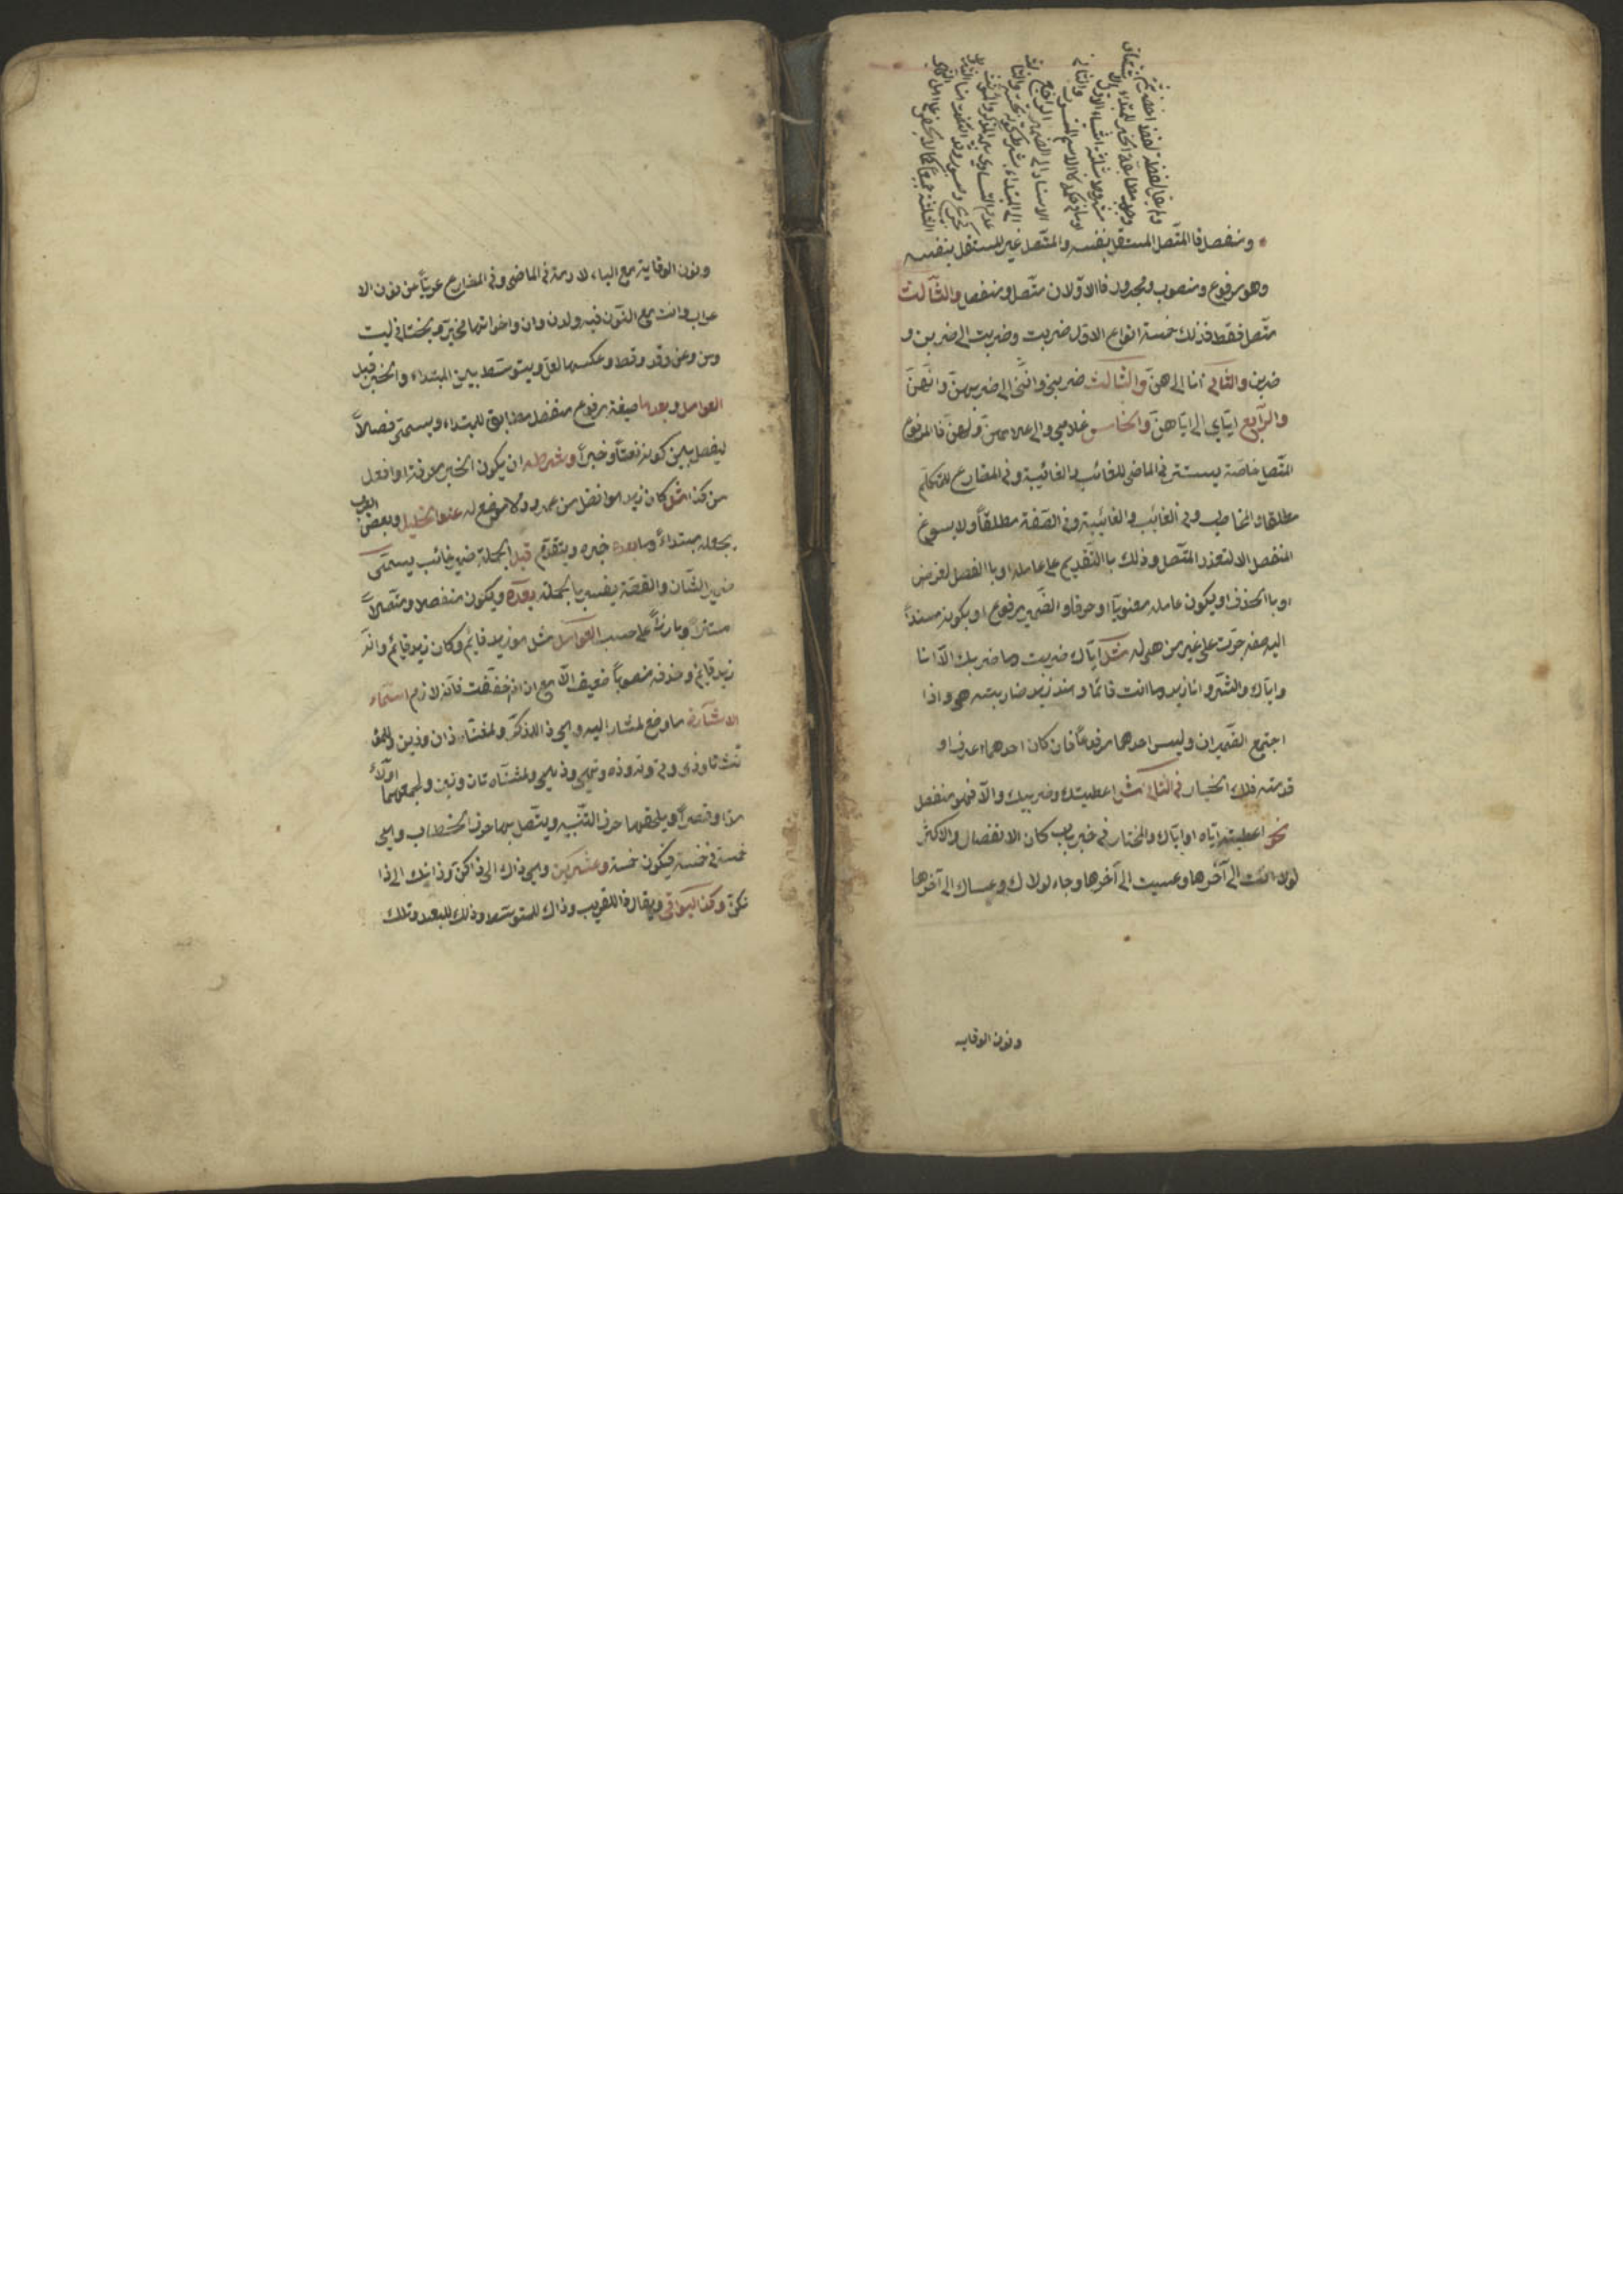 ومنفصل فا المتصل المستقل بنفسه والمتصل غير المستقل بنفسه
وهو مرفوع ومنصوب ومجرور فا الاولان متصل ومنفصل والثالث
متصل فقط فذلك خمسة انواع الاول ضربت وضربت الى ضربن و
ضربن والثاني انا الى هن والثالث ضربني وانني الى ضربهن وانهن
والرابع اياي الى اياهن والخامس غلامي ولي الى غلامهن ولهن فا المرفوع
المتصل خاصة يستتر في الماضي للغائب والغائبة وفي المضارع للمتكلم
مطلقا والمخاطب وفي الغائب والغائبة وفي الصفة مطلقاً ولا يسوغ
المنفصل الا لتعذر المتصل وذلك با التقديم على عامله او با الفصل لغرض
او با الحذف او يكون عامله معنوياً او حرفا والضمير مرفوع او يكونه مسنداً
اليه صفة جرت على غير من هي له مثل اياك ضربت وما ضربك الا انا
واياك والشر وانا زيد وما انت قائما وهند زيد ضاربته هي واذا
اجتمع الضميران وليس احدهما مرفوعاً فان كان احدهما اعرف و
قدمته فلك الخيار في الثاني مثل اعطيتك وضربيك والا فهو منفصل
نحو اعطيته اياه او اياك والمختار في خبر باب كان الانفصال والاكثر
لولا انت الى آخرها وعسيت الى آخرها وجاء لولاك وعساك الى آخرها
ونون الوقايه
ونون الوقاية مع الياء لازمة في الماضي وفي المضارع عرياً من نون الا
عراب وانت مع النون فيه ولدن وان واخواتها مخير ويختار في ليت
ومن وعن وقد وقط وعكسها لعل ويتوسط بين المبتداء والخبر قبل
العوامل وبعدها صيغة مرفوع منفصل مطابق للمبتداء ويسمى فصلاً
ليفصل بين كونه نعتاً وخبراً وشرطه ان يكون الخبر معرفة او افعل
من كذا مثل كان زيد هو افضل من عمرو ولا موضع له عند الخليل وبعض العرب
يجعله مبتداءً وما بعده خبره ويتقدم قبل الجملة ضمير غائب يسمى
ضمير الشان والقصة يفسر با الجملة بعده ويكون منفصلا ومتصلاً
مستتراً وبارزاً على حسب العوامل مثل هو زيد قائم وكان زيد قائم وانه
زيد قائم وحذفه منصوباً ضعيف الا مع ان اذا خففت فانه لازم اسماء
الاشارة ما وضع لمشار اليه وهي ذا للمذكر ولمثناه ذان وذين وللمؤ
نث تا وذي وتي وته وذه وتهي وذهي ولمثناه تان وتين ولجمعهما اولاء
مداً وقصراً ويلحقها حرف التنبيه ويتصل بها حرف الخطاب وهي
خمسة في خمسة فيكون خمسة وعشرين وهي ذاك الى ذاكن وذانك الى ذا
نكن وكذا البواقي ويقال ذا للقريب وذاك للمتوسط وذلك للبعيد وتلك